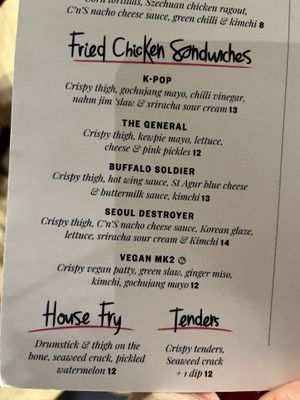 Corn tortillas, Szechuan chicken ragout,
C'n'S nacho cheese sauce, green chilli & kimchi 8
Fried Chicken Sandwiches
K-POP
Crispy thigh, gochujang mayo, chilli vinegar,
nahm jim 'slaw & sriracha sour cream 13
THE GENERAL
Crispy thigh, kewpie mayo, lettuce,
cheese & pink pickles 12
BUFFALO SOLDIER
Crispy thigh, hot wing sauce, St Agur blue cheese
& buttermilk sauce, kimchi 13
SEOUL DESTROYER
Crispy thigh, C'n'S nacho cheese sauce, Korean glaze,
lettuce, sriracha sour cream & Kimchi 14
VEGAN MK2
Crispy vegan patty, green slaw, ginger miso,
kimchi, gochujang mayo 12
House Fry
Drumstick & thigh on the
bone, seaweed crack, pickled
watermelon 12
Tenders
Crispy tenders,
Seaweed crack
+ 1 dip 12